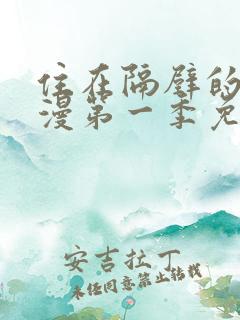 住在隔壁的
漫第一季免
安吉拉丁
未经同意禁止转载